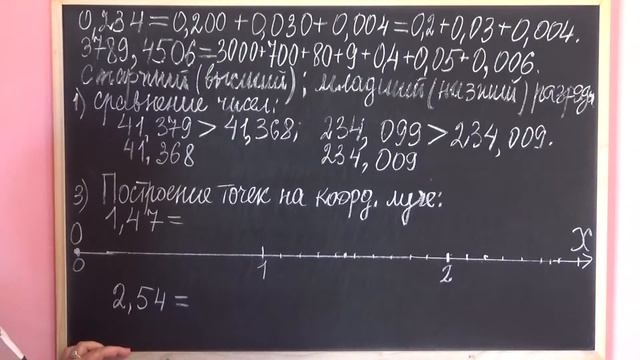 0,234=0,200+0,030+0,004=0,2+0,03+0,004.
3789,4506=3000+700+80+9+04+0,05+0,006.
Старший(высший); младший(низший) разряды
1) сравнение чисел:
41,379>41,368; 234,099>234,009.
41,368 234,009
3) Построение точек на коорд. луче:
1,47=
0 X
0 1 2
2,54=